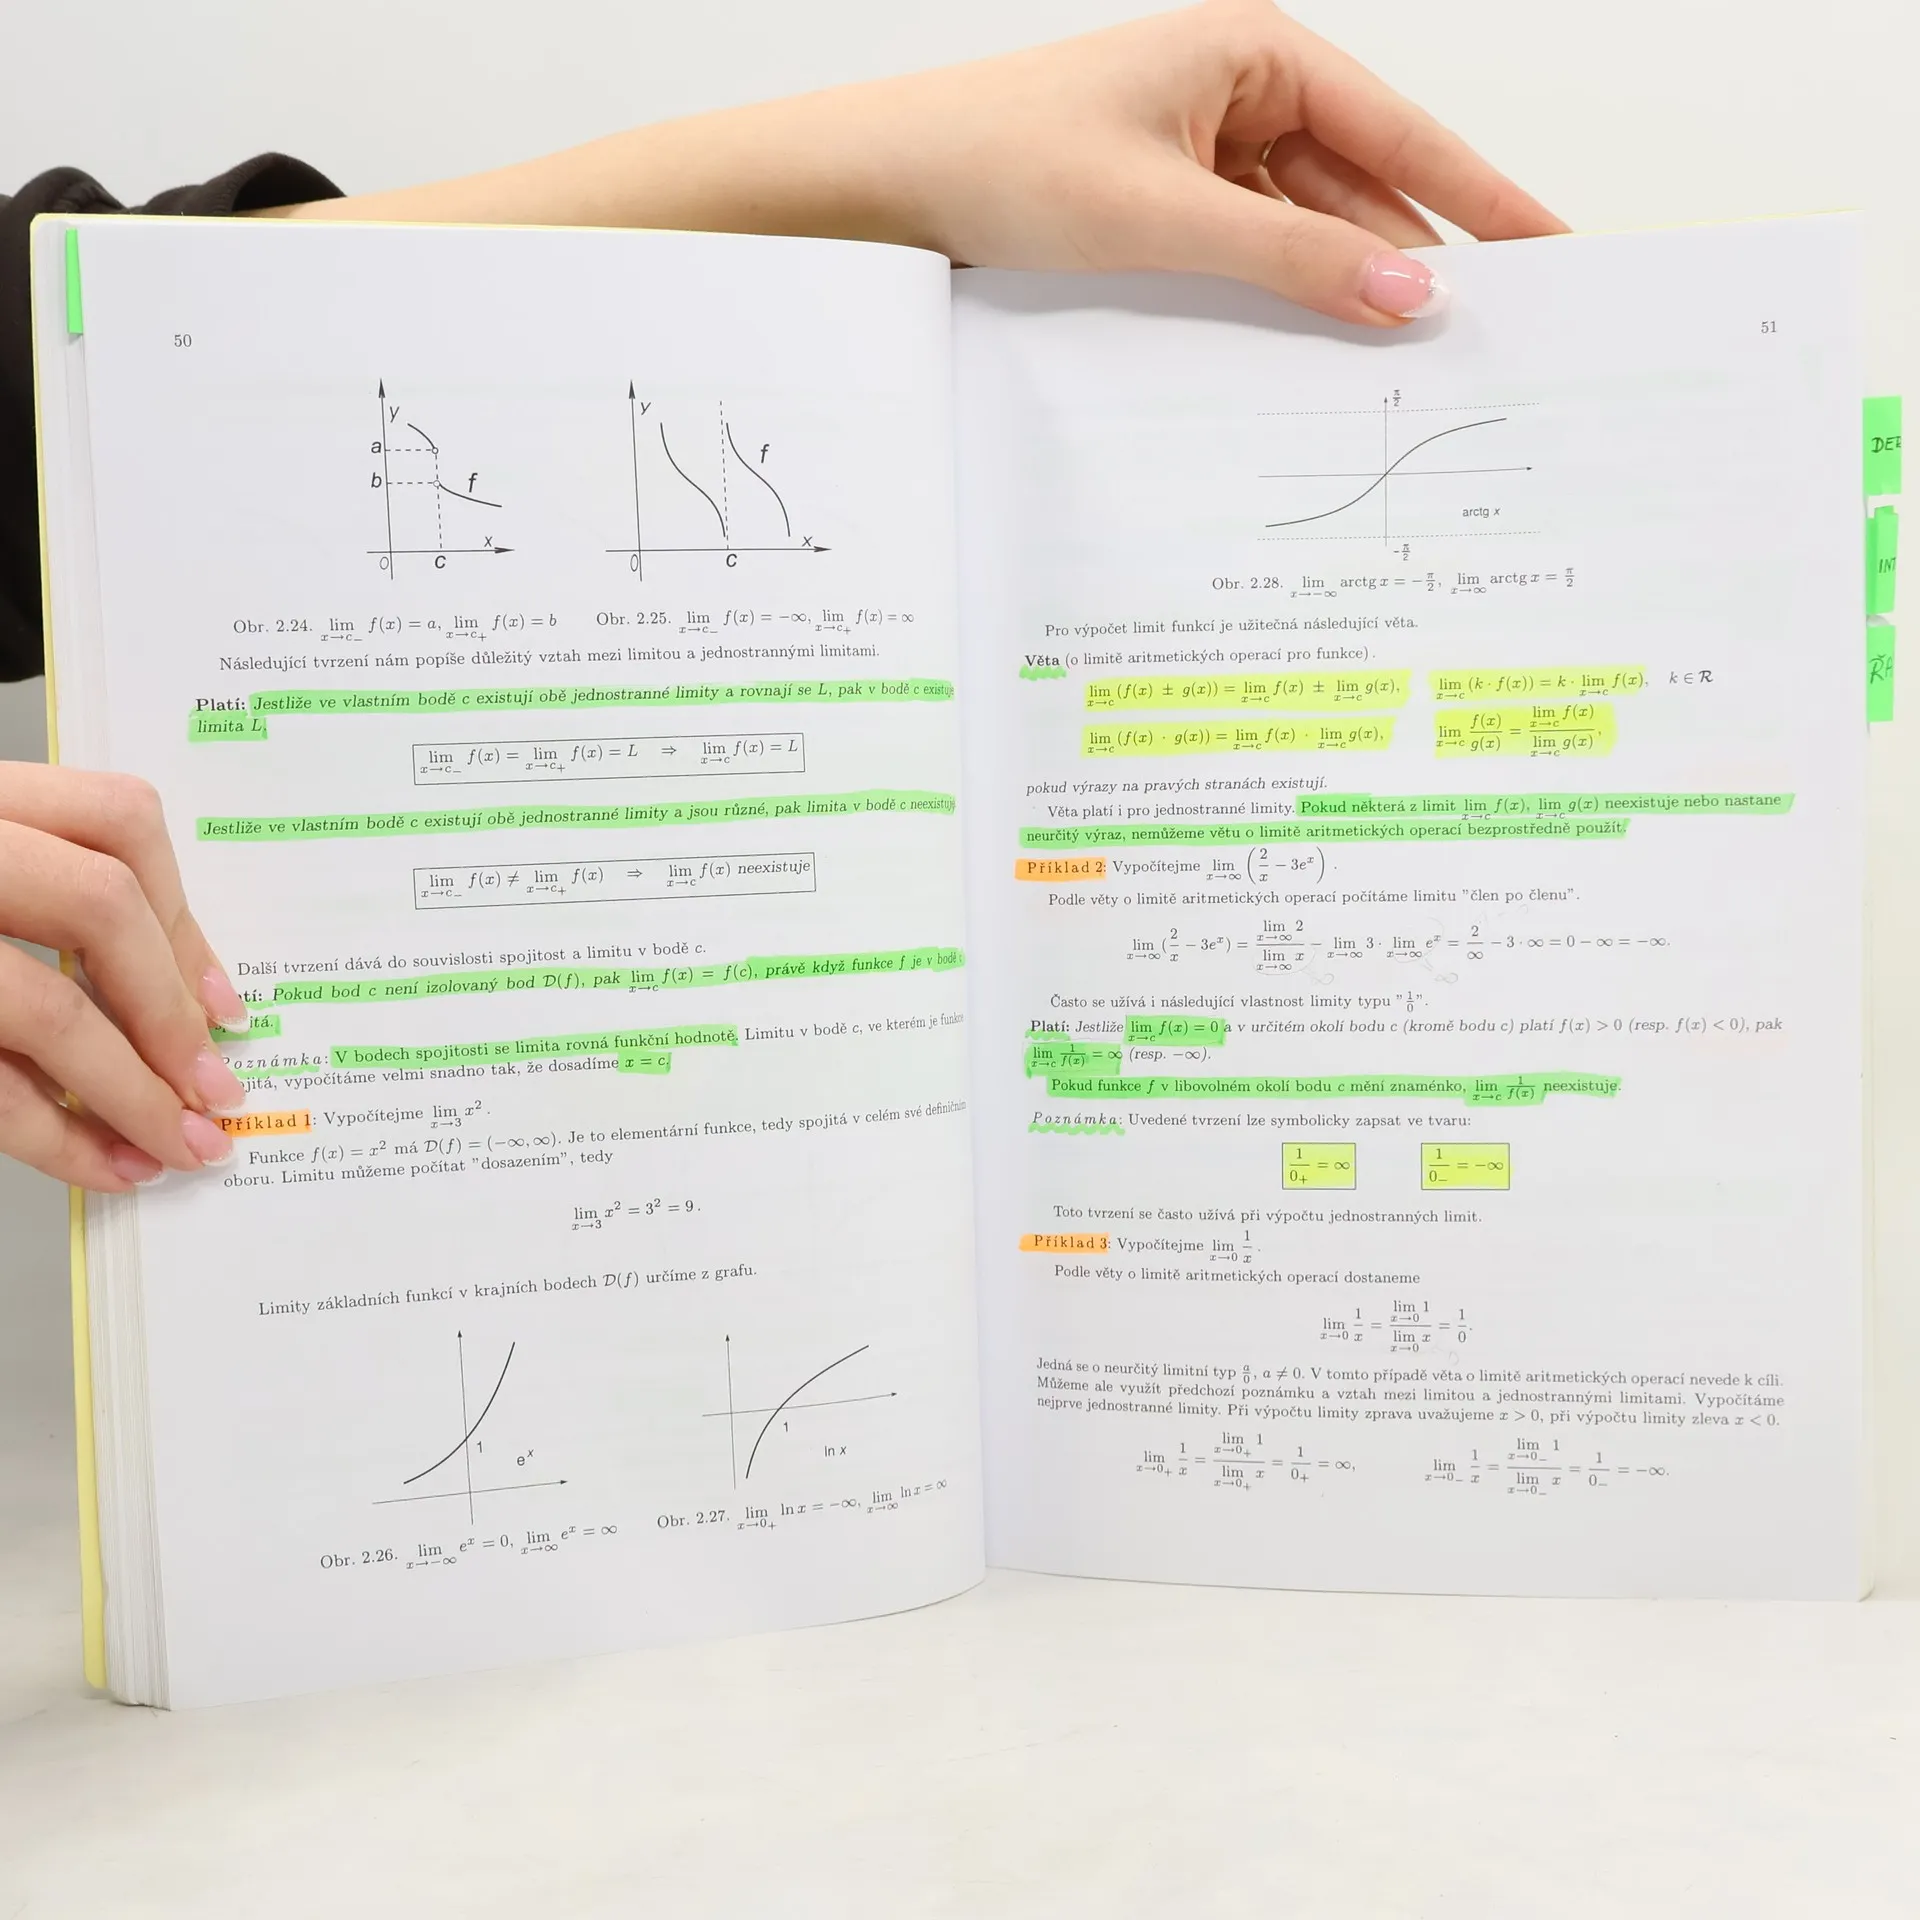 50
y
a
b
f
x
0
c
y
f
x
0
c
Obr. 2.24. lim x→c₋ f(x) = a, lim x→c₊ f(x) = b
Obr. 2.25. lim x→c₋ f(x) = −∞, lim x→c₊ f(x) = ∞
Následující tvrzení nám popíše důležitý vztah mezi limitou a jednostrannými limitami.
Platí: Jestliže ve vlastním bodě c existují obě jednostranné limity a rovnají se L, pak v bodě c existuje
limita L.
lim x→c₋ f(x) = lim x→c₊ f(x) = L ⇒ lim x→c f(x) = L
Jestliže ve vlastním bodě c existují obě jednostranné limity a jsou různé, pak limita v bodě c neexistuje
lim x→c₋ f(x) ≠ lim x→c₊ f(x) ⇒ lim x→c f(x) neexistuje
Další tvrzení dává do souvislosti spojitost a limitu v bodě c.
tí: Pokud bod c není izolovaný bod D(f), pak lim x→c f(x) = f(c), právě když funkce f je v bodě
itá.
Poznámka: V bodech spojitosti se limita rovná funkční hodnotě. Limitu v bodě c, ve kterém je funkce
jitá, vypočítáme velmi snadno tak, že dosadíme x = c.
Příklad 1: Vypočítejme lim x→3 x².
Funkce f(x) = x² má D(f) = (−∞, ∞). Je to elementární funkce, tedy spojitá v celém své definičním
oboru. Limitu můžeme počítat "dosazením", tedy
lim x→3 x² = 3² = 9.
Limity základních funkcí v krajních bodech D(f) určíme z grafu.
1
eˣ
1
ln x
Obr. 2.26. lim x→−∞ eˣ = 0, lim x→∞ eˣ = ∞
Obr. 2.27. lim x→0₊ ln x = −∞, lim x→∞ ln x = ∞
51
π/2
arctg x
−π/2
Obr. 2.28. lim x→−∞ arctg x = −π/2, lim x→∞ arctg x = π/2
Pro výpočet limit funkcí je užitečná následující věta.
Věta (o limitě aritmetických operací pro funkce).
lim x→c (f(x) ± g(x)) = lim x→c f(x) ± lim x→c g(x), lim x→c (k · f(x)) = k · lim x→c f(x), k ∈ R
lim x→c (f(x) · g(x)) = lim x→c f(x) · lim x→c g(x), lim x→c f(x)/g(x) = lim x→c f(x) / lim x→c g(x),
pokud výrazy na pravých stranách existují.
Věta platí i pro jednostranné limity. Pokud některá z limit lim x→c f(x), lim x→c g(x) neexistuje nebo nastane
neurčitý výraz, nemůžeme větu o limitě aritmetických operací bezprostředně použít.
Příklad 2: Vypočítejme lim x→∞ (2/x − 3eˣ).
Podle věty o limitě aritmetických operací počítáme limitu "člen po členu".
lim x→∞ (2/x − 3eˣ) = lim x→∞ 2 / lim x→∞ x − lim x→∞ 3 · lim x→∞ eˣ = 2/∞ − 3 · ∞ = 0 − ∞ = −∞.
Často se užívá i následující vlastnost limity typu "1/0".
Platí: Jestliže lim x→c f(x) = 0 a v určitém okolí bodu c (kromě bodu c) platí f(x) > 0 (resp. f(x) < 0), pak
lim x→c 1/f(x) = ∞ (resp. −∞).
Pokud funkce f v libovolném okolí bodu c mění znaménko, lim x→c 1/f(x) neexistuje.
Poznámka: Uvedené tvrzení lze symbolicky zapsat ve tvaru:
1/0₊ = ∞ 1/0₋ = −∞
Toto tvrzení se často užívá při výpočtu jednostranných limit.
Příklad 3: Vypočítejme lim x→0 1/x.
Podle věty o limitě aritmetických operací dostaneme
lim x→0 1/x = lim x→0 1 / lim x→0 x = 1/0.
Jedná se o neurčitý limitní typ a/0, a ≠ 0. V tomto případě věta o limitě aritmetických operací nevede k cíli.
Můžeme ale využít předchozí poznámku a vztah mezi limitou a jednostrannými limitami. Vypočítáme
nejprve jednostranné limity. Při výpočtu limity zprava uvažujeme x > 0, při výpočtu limity zleva x < 0.
lim x→0₊ 1/x = lim x→0₊ 1 / lim x→0₊ x = 1/0₊ = ∞, lim x→0₋ 1/x = lim x→0₋ 1 / lim x→0₋ x = 1/0₋ = −∞.
DER
INT
ŘA